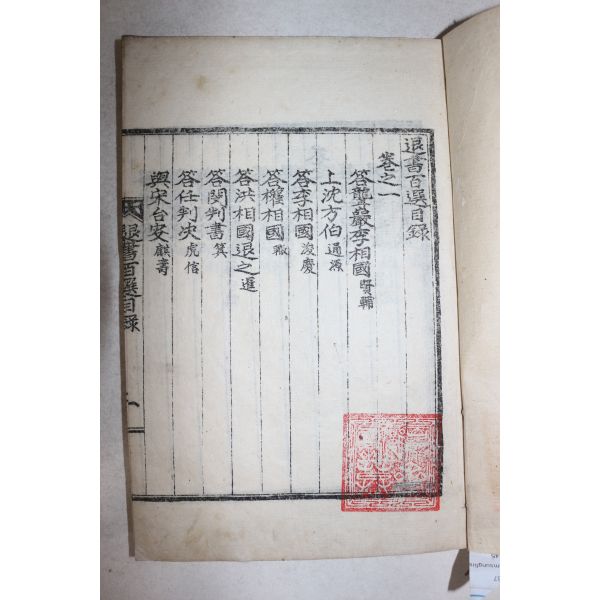 退書百選目錄
卷之一
答聾巖李相國 賢輔
上沈方伯 通源
答李相國 浚慶
答權相國 轍
答洪相國退之 暹
答閔判書 箕
答任判決 虎信
與宋台叟 麒壽
退書百選目錄 一